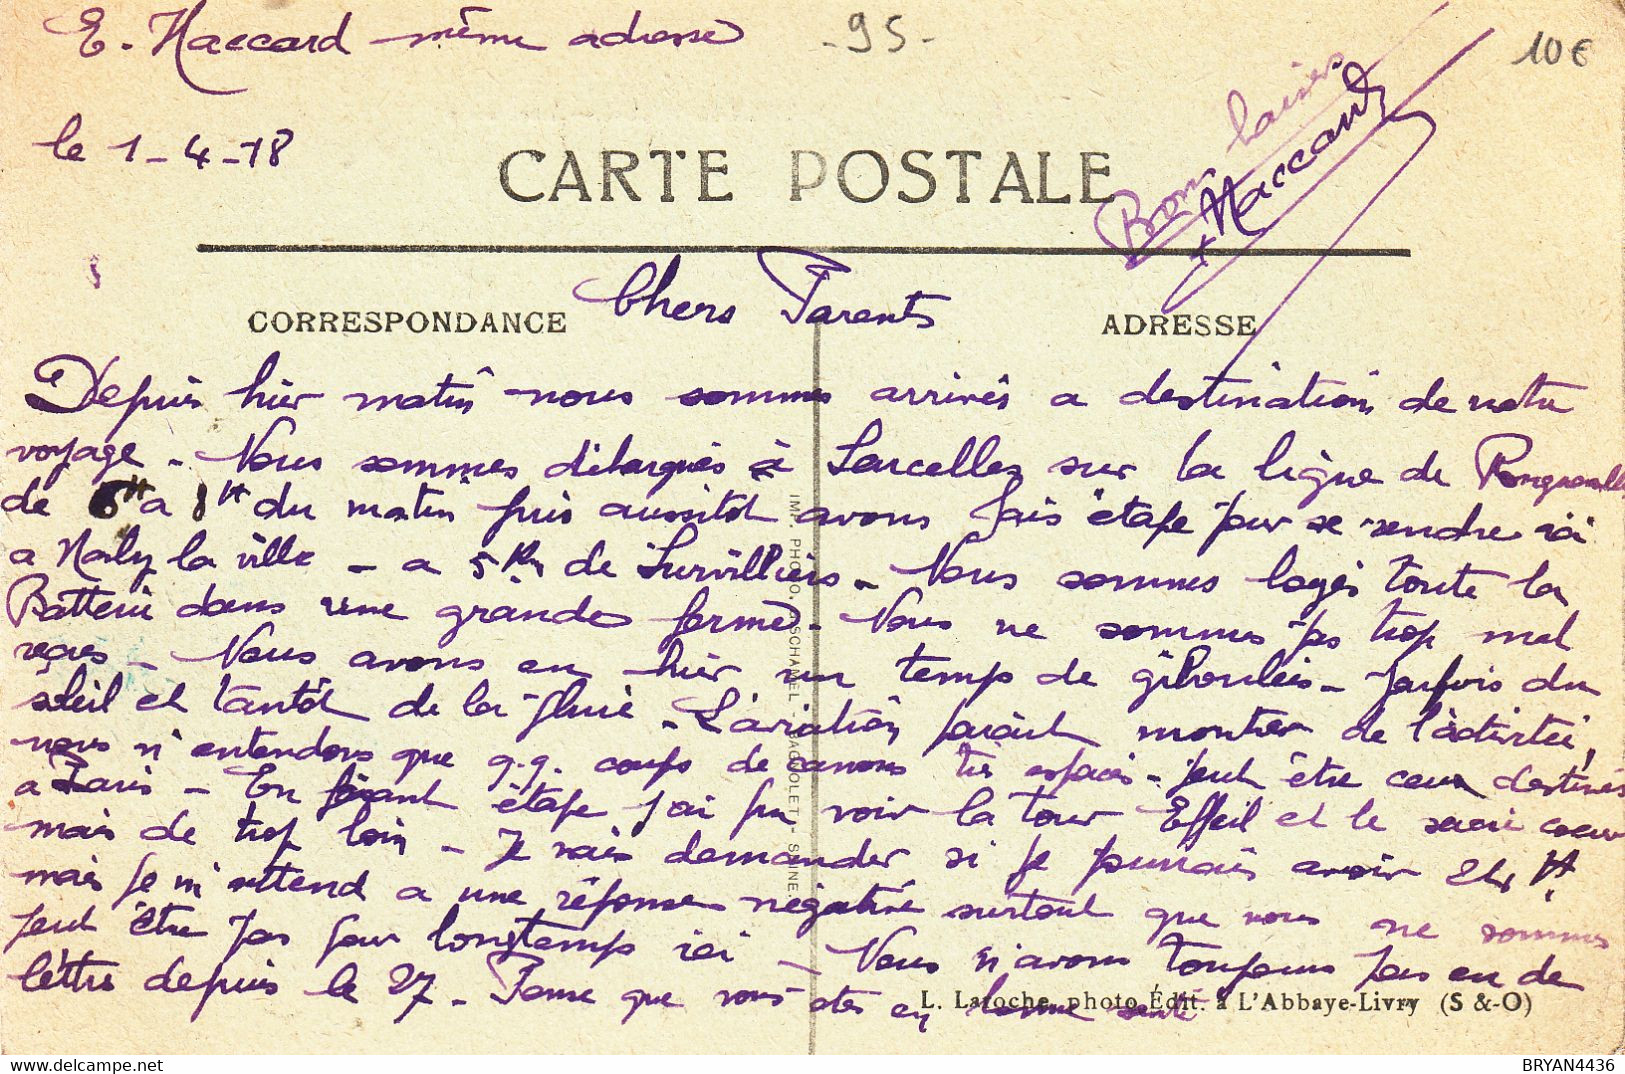 E. Haccard même adresse
-95-
10€
le 1-4-18
CARTE POSTALE
Bons baisers
Haccard
CORRESPONDANCE
Chers Parents
ADRESSE
Depuis hier matin nous sommes arrivés a destination de notre
voyage - Nous sommes débarqués à Sarcelles sur la ligne de
de 6H a 8H du matin puis aussitot avons fais étape pour se rendre ici
a Marly la ville - a 5 Km de Survilliers - Nous sommes logés toute la
Batterie dans une grande ferme - Nous ne sommes pas trop mal
reçues - Nous avons eu hier un temps de giboulées - parfois du
soleil et tantôt de la pluie - L'aviation parait montrer de l'activité,
nous n'entendons que q.q. coups de canons très espacés - peut être ceux destinés
a Paris - En faisant étape j'ai pu voir la tour Effeil et le sacré coeur
mais de trop loin - Je vais demander si je pourrais avoir 24 H
mais je m'attend a une réponse négative surtout que nous ne sommes
peut être pas pour longtemps ici - Nous n'avons toujours pas eu de
lettre depuis le 27 - Pense que vous êtes en bonne santé
IMP. PHOTO.
L. Laroche, photo Édit. à L'Abbaye-Livry (S &-O)
delcampe.net
BRYAN4436